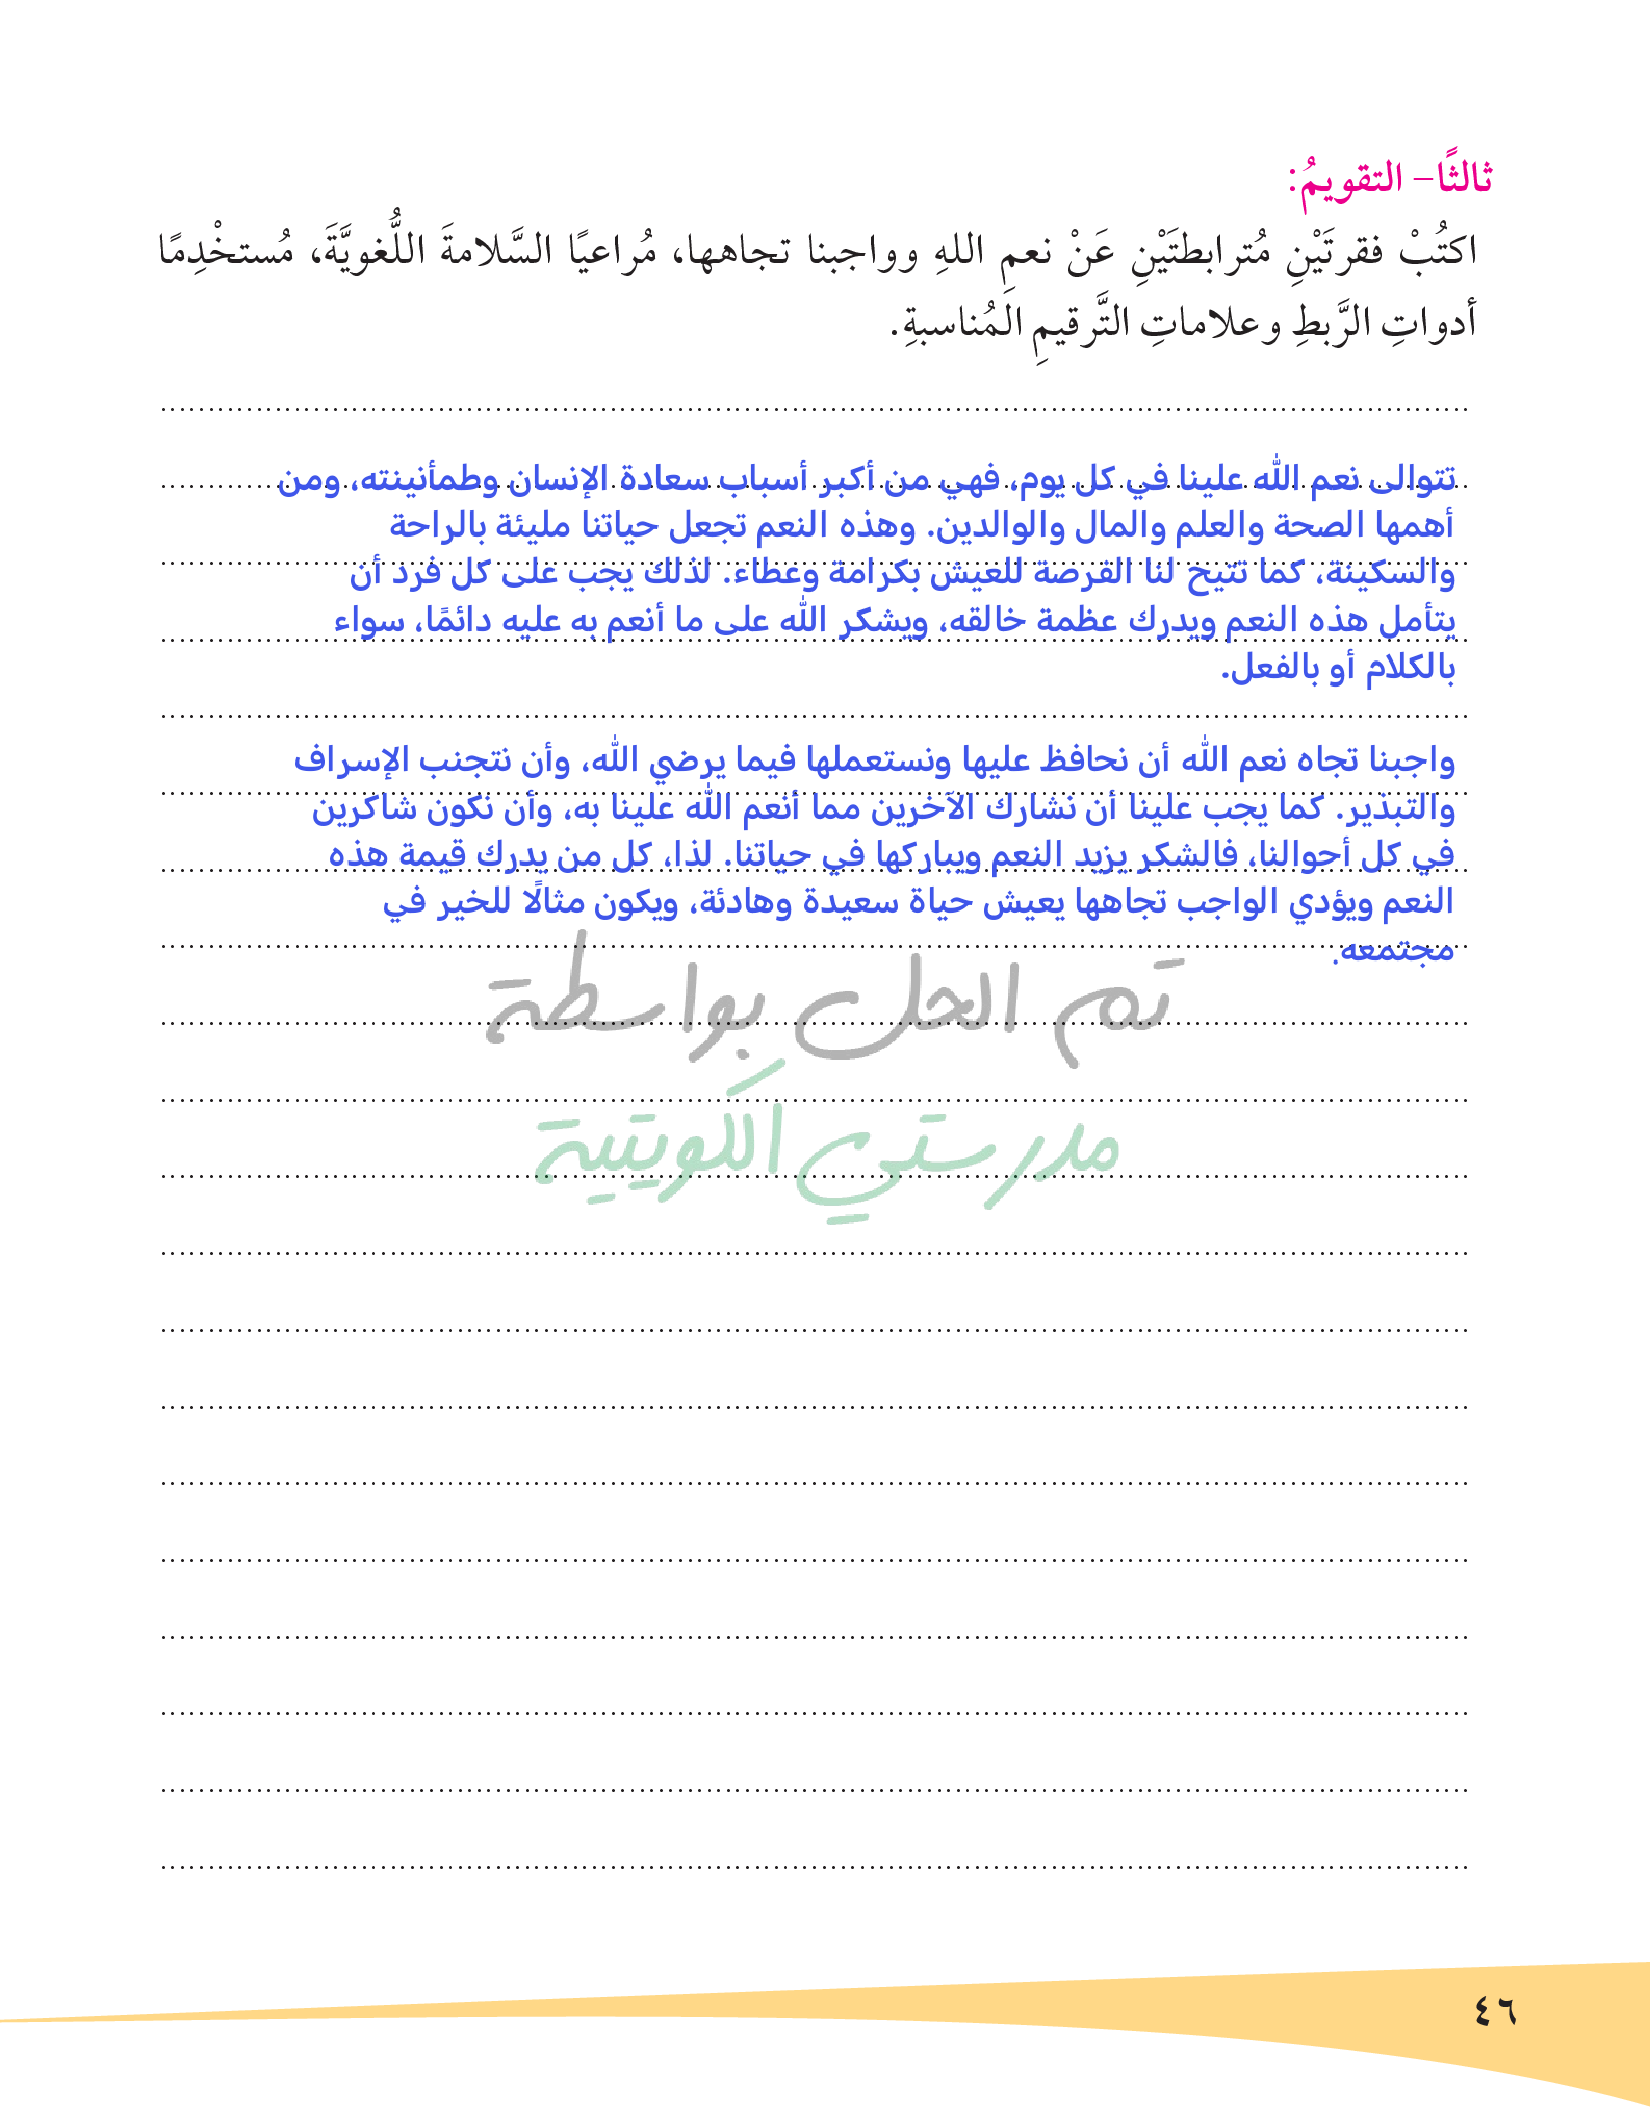 ثالثًا– التقويمُ:
اكتُبْ فقرتَيْنِ مُترابطتَيْنِ عَنْ نعمِ اللهِ وواجبنا تجاهها، مُراعيًا السَّلامةَ اللُّغويَّةَ، مُستخْدِمًا
أدواتِ الرَّبطِ وعلاماتِ التَّرقيمِ المُناسبةِ.
تتوالى نعم الله علينا في كل يوم، فهي من أكبر أسباب سعادة الإنسان وطمأنينته، ومن
أهمها الصحة والعلم والمال والوالدين. وهذه النعم تجعل حياتنا مليئة بالراحة
والسكينة، كما تتيح لنا الفرصة للعيش بكرامة وعطاء. لذلك يجب على كل فرد أن
يتأمل هذه النعم ويدرك عظمة خالقه، ويشكر الله على ما أنعم به عليه دائمًا، سواء
بالكلام أو بالفعل.
واجبنا تجاه نعم الله أن نحافظ عليها ونستعملها فيما يرضي الله، وأن نتجنب الإسراف
والتبذير. كما يجب علينا أن نشارك الآخرين مما أنعم الله علينا به، وأن نكون شاكرين
في كل أحوالنا، فالشكر يزيد النعم ويباركها في حياتنا. لذا، كل من يدرك قيمة هذه
النعم ويؤدي الواجب تجاهها يعيش حياة سعيدة وهادئة، ويكون مثالًا للخير في
مجتمعه.
تم الحل بواسطة
مدرستي الكويتية
٤٦